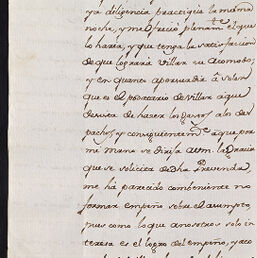 y a diligencia practicada la misma
noche, y me ofreció plenam.te el que
lo haria, y que tenga la satisfaccion
de que lograra Villar su acomodo;
y en quanto
que es el podatario de Villar aque
de hacer los gasos alos des
pachos, y consiguientem.te aque por
mi mano se dirija a V.m. la gracia
que se solicita de dha Prevenda,
me ha parecido combeniente no
formar empeño sobre el asumpto,
pues como lo que a nosotros solo in
teresa es el logro del empeño, y aco